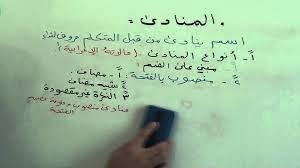 المنادى.
اسم ينادى من قبل المتكلم حروف النداء
أ- أنواع المنادى: (حالاته الإعرابية)
مبني على الضم:
٢- منصوب بالفتحة: أ- مضاف
٢ شبيه مضاف
٣ النكرة غير مقصودة
منادى منصوب وعلامة نصبه الفتحة